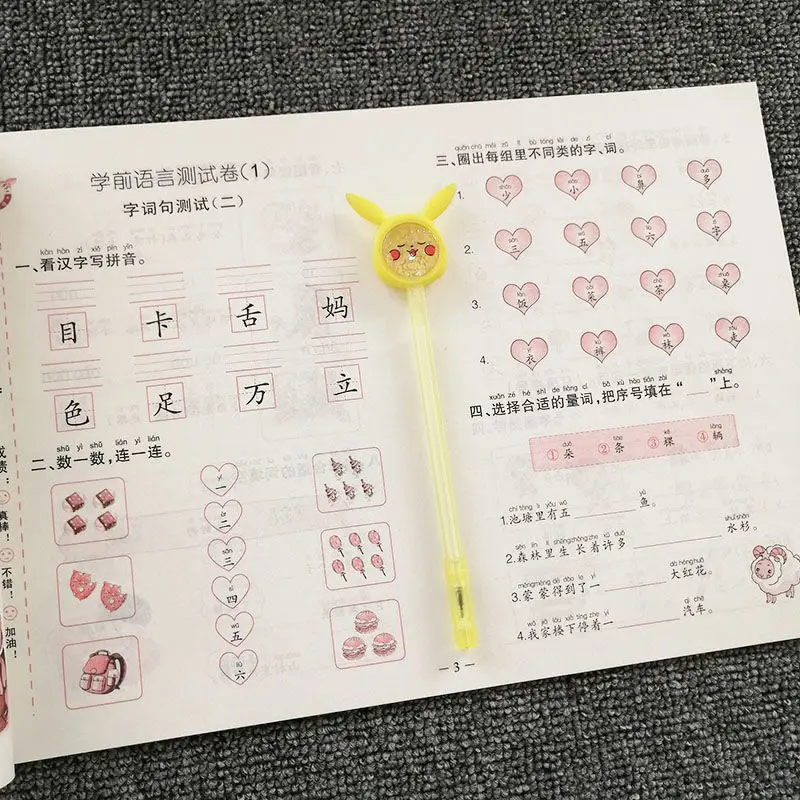 学前语言测试卷(1)
字词句测试(二)
kàn hàn zì xiě pīn yīn
一、看汉字写拼音。
目 卡 舌 妈
色 足 万 立
shǔ yì shǔ lián yì lián
二、数一数,连一连。
yī
一
èr
二
sān
三
sì
四
wǔ
五
liù
六
真棒!
不错!
加油!
quān chū měi zǔ lǐ bù tóng lèi de zì cí
三、圈出每组里不同类的字、词。
shǎo xiǎo bí duō
1. 少 小 鼻 多
sān wǔ liù zì
2. 三 五 六 字
fàn cài chá zhuō
3. 饭 菜 茶 桌
yī kù wà zǒu
4. 衣 裤 袜 走
xuǎn zé hé shì de liàng cí bǎ xù hào tián zài shàng
四、选择合适的量词,把序号填在“__”上。
duǒ tiáo kē liàng
①朵 ②条 ③棵 ④辆
chí táng lǐ yǒu wǔ yú
1.池塘里有五____鱼。
sēn lín lǐ shēng zhǎng zhe xǔ duō shuǐ shān
2.森林里生长着许多____水杉。
méng méng dé dào le yì dà hóng huā
3.蒙蒙得到了一____大红花。
wǒ jiā lóu xià tíng zhe yí qì chē
4.我家楼下停着一____汽车。
— 3 —